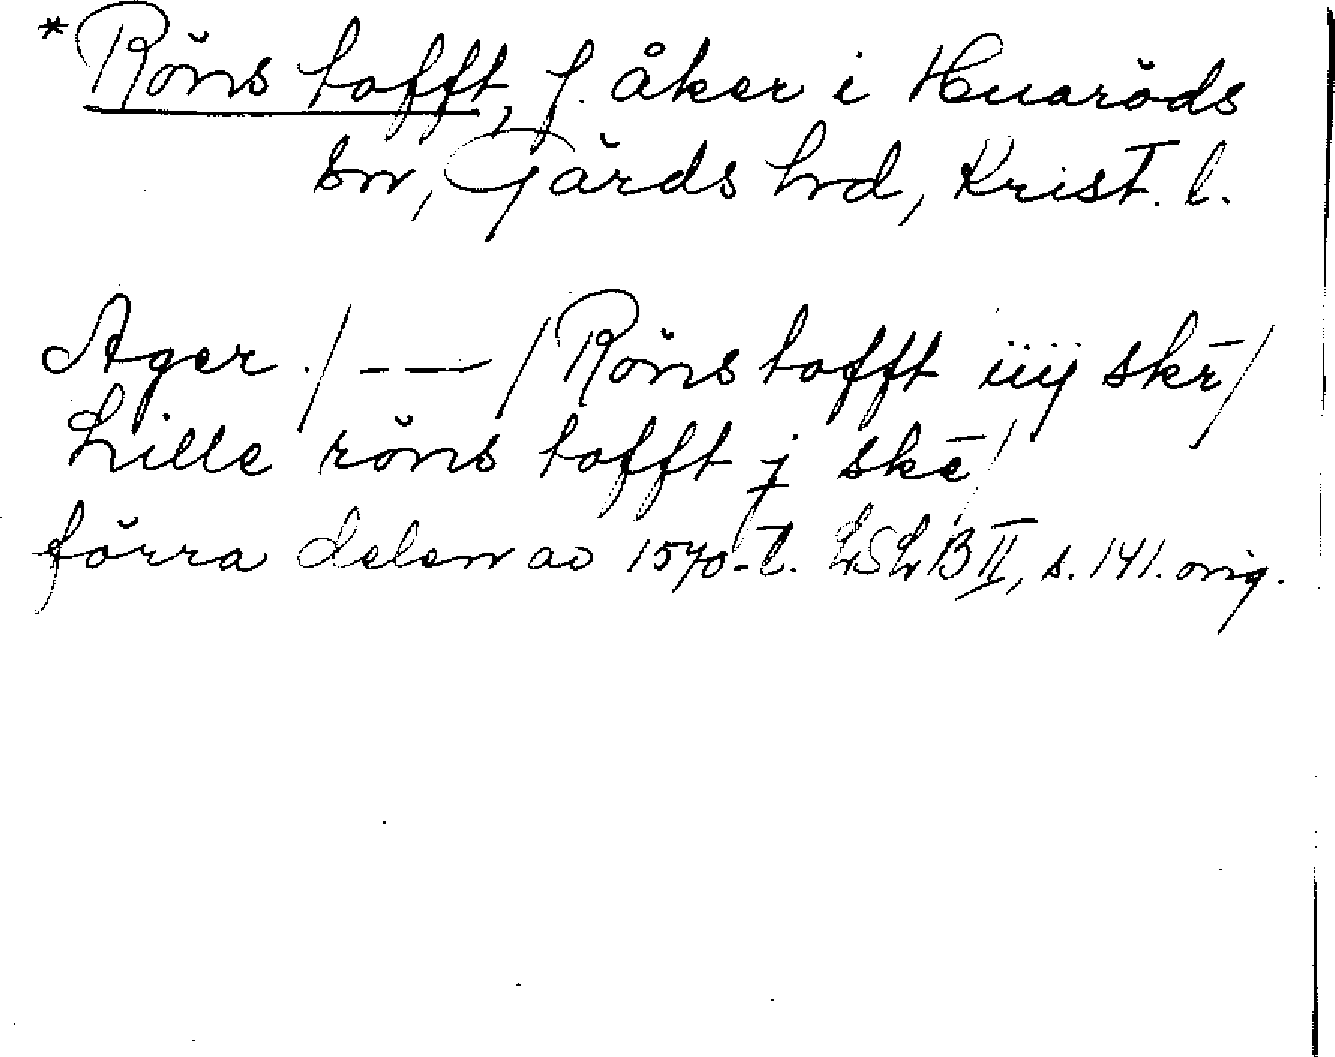 *Röns tofft, f. åker i Huaröds
sn, Gärds hd, Krist. l.
Ager /---/ Röns tofft iiij skē/
Lille röns tofft j skē/
förra delen av 1570-t. LSLB II, s. 141. orig.